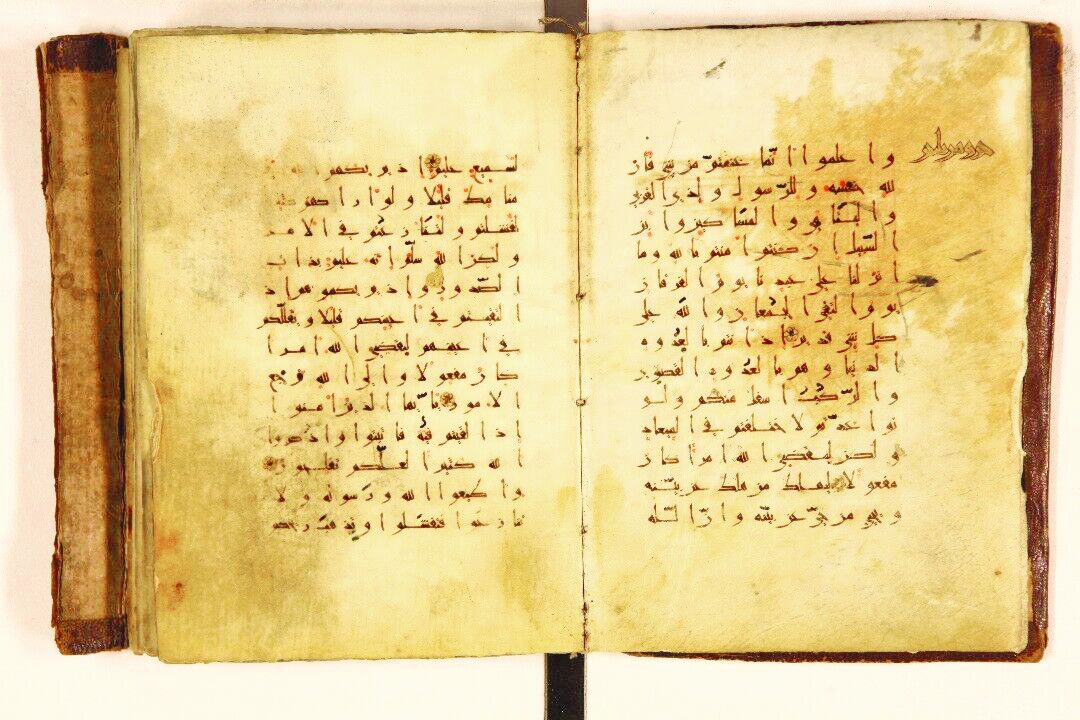 واعلموا انما غنمتم من شي فان
لله خمسه وللرسول ولذي القربى
واليتمى والمسكين وابن
السبيل ان كنتم امنتم بالله وما
انزلنا على عبدنا يوم الفرقان
يوم التقى الجمعان والله على
كل شي قدير اذ انتم بالعدوه
الدنيا وهم بالعدوه القصوى
والركب اسفل منكم ولو
تواعدتم لاختلفتم في الميعاد
ولكن ليقضي الله امرا كان
مفعولا ليهلك من هلك عن بينه
ويحيى من حي عن بينه وان الله
لسميع عليم اذ يريكهم
منامك قليلا ولو اراكهم كثيرا
لفشلتم ولتنازعتم في الامر
ولكن الله سلم انه عليم بذات
الصدور واذ يريكموهم اذ
التقيتم في اعينكم قليلا ويقللكم
في اعينهم ليقضي الله امرا
كان مفعولا والى الله ترجع
الامور يايها الذين امنوا
اذا لقيتم فئه فاثبتوا واذكروا
الله كثيرا لعلكم تفلحون
واطيعوا الله ورسوله ولا
تنازعوا فتفشلوا وتذهب ريحكم